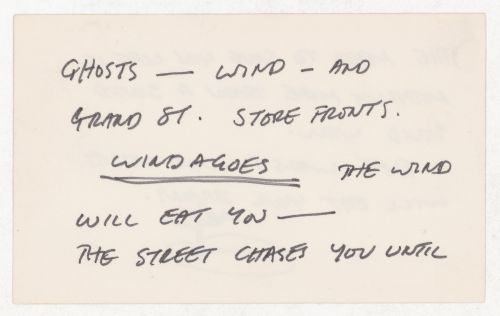 GHOSTS — WIND – AND
GRAND ST. STORE FRONTS.
WINDAGOES THE WIND
WILL EAT YOU —
THE STREET CHASES YOU UNTIL